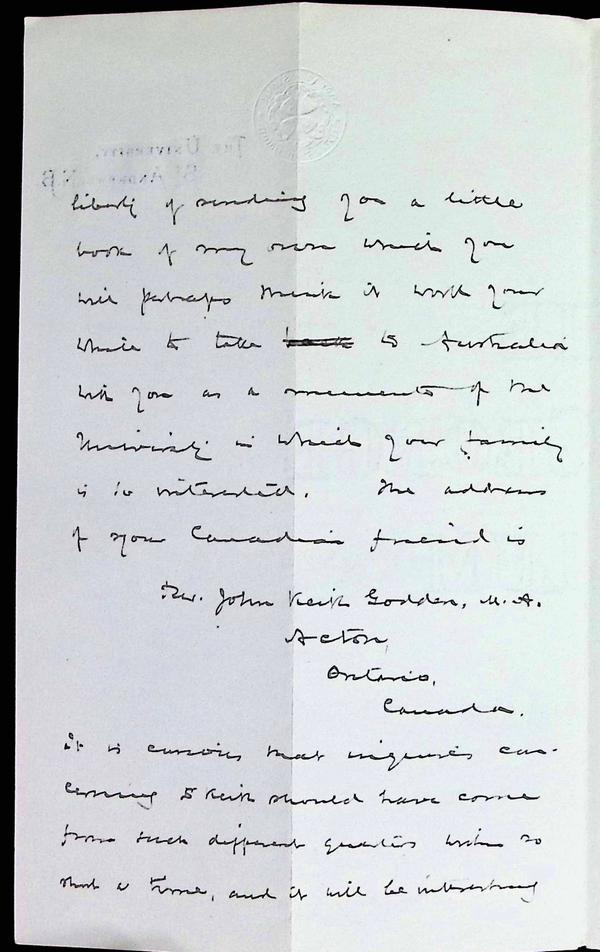 liberty of sending you a little
book of my own which you
will perhaps think it worth your
while to take back to Australia
with you as a memento of the
University in which your family
is so interested. The address
of your Canadian friend is
Rev. John Keith Godden, M.A.
Acton,
Ontario,
Canada.
It is curious that inquiries con-
cerning Dr Keith should have come
from such different quarters within so
short a time, and it will be interesting